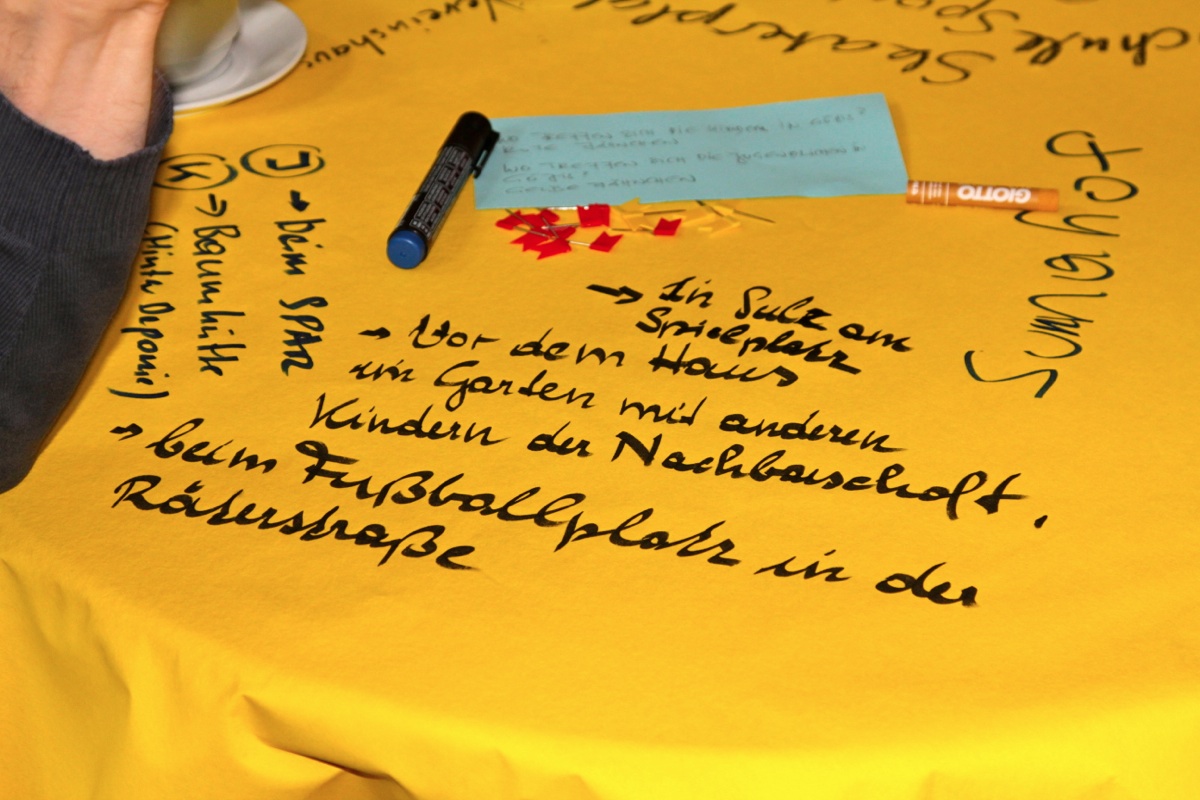 Vereinshaus
Skaterplatz
WO TREFFEN SICH DIE KINDER IN GÖFIS?
ROTE FÄHNCHEN
WO TREFFEN SICH DIE JUGENDLICHEN IN
GÖFIS?
GELBE FÄHNCHEN
GIOTTO
J
→ beim SPAR
K
→ Baumhütte
(Hinter Deponie)
→ In Sulz am
Spielplatz
→ Vor dem Haus
im Garten mit anderen
Kindern der Nachbarschaft.
→ beim Fußballplatz in der
Räterstraße